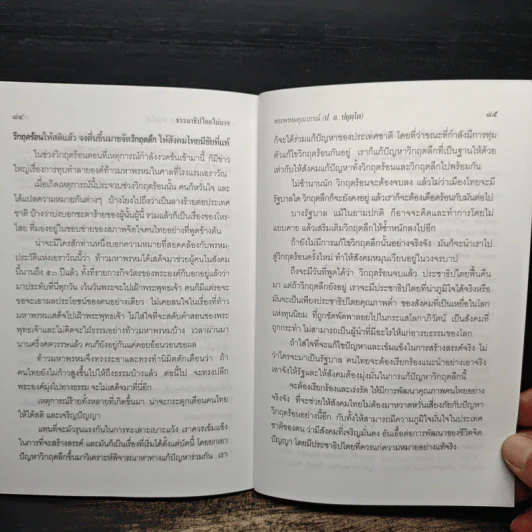 ๘๔
ธรรมาธิปไตยไม่มา
วิกฤตร้อนให้สติแล้ว จงตื่นขึ้นมาขจัดวิกฤตลึก ให้สังคมไทยมีชัยที่แท้
ในช่วงวิกฤตร้อนตอนที่เหตุการณ์กำลังงวดขันเข้ามานี้ ก็มีข่าว
ใหญ่เรื่องการทุบทำลายองค์ท้าวมหาพรหมในศาลที่โรงแรมเอราวัณ
เมื่อเกิดเหตุการณ์นี้ประจวบช่วงวิกฤตร้อนนั้น คนก็หวั่นใจ และ
ได้แปลความหมายกันต่างๆ บ้างโยงไปถึงว่าเป็นลางร้ายต่อประเทศ
ชาติ บ้างว่าบ่งบอกชะตาร้ายของผู้นั้นผู้นี้ รวมแล้วก็เป็นเรื่องของโหร-
โดย ที่มองอยู่ในขอบข่ายของสภาพจิตใจคนไทยอย่างที่พูดข้างต้น
น่าจะมีใครสักท่านหนึ่งบอกความหมายที่สอดคล้องกับพรหม-
ประวัติแห่งเอราวัณนี้ว่า ท้าวมหาพรหมได้เสด็จมาช่วยผู้คนในสังคม
นี้นานถึง ๕๐ ปีแล้ว ทั้งที่รายการกิจวัตรของพระองค์ก็บอกอยู่แล้วว่า
มาประทับที่นี่ทุกวัน เว้นวันพระจะไปเฝ้าพระพุทธเจ้า คนก็มีแต่รอจะ
ขอจะเอาผลประโยชน์ของตนอย่างเดียว ไม่เคยสนใจเรื่องที่ท้าว
มหาพรหมเสด็จไปเฝ้าพระพุทธเจ้า ไม่ใส่ใจที่จะสดับคำสอนของพระ
พุทธเจ้าและไม่คิดจะใฝ่ธรรมอย่างท้าวมหาพรหมบ้าง เวลาผ่านมา
นานครึ่งศตวรรษแล้ว คนก็ยังอยู่กันแค่คอยอ้อนวอนขอผล
ท้าวมหาพรหมจึงทรงระอาและทรงทำนิมิตตักเตือนว่า ถ้า
คนไทยยังไม่ก้าวสูงขึ้นไปให้ถึงธรรมบ้างแล้ว ต่อนี้ไป จะทรงปลีก
พระองค์มุ่งไปทางธรรม จะไม่เสด็จมาที่นี่อีก
เหตุการณ์ร้ายทั้งหลายที่เกิดขึ้นมา น่าจะกระตุกเตือนคนไทย
ให้ได้สติ และเจริญปัญญา
แทนที่จะมัวรุนแรงกันในการทะเลาะเบาะแว้ง เราควรเข้มแข็ง
ในการที่จะสร้างสรรค์ และมันก็เป็นเรื่องที่เริ่มได้ตั้งแต่บัดนี้ โดยยกเอา
ปัญหาวิกฤตลึกขึ้นมาวิเคราะห์พิจารณาหาทางแก้ปัญหาร่วมกัน เรา
พระพรหมคุณาภรณ์ (ป. อ. ปยุตฺโต)
๘๕
ก็จะได้ร่วมแก้ปัญหาของประเทศชาติ โดยที่ว่าขณะที่กำลังมีการทุ่ม
ตัวแก้ไขวิกฤตร้อนกันอยู่ เราก็แก้ปัญหาวิกฤตลึกที่เป็นฐานให้ด้วย
เท่ากับให้สังคมแก้ปัญหาทั้งวิกฤตร้อนและวิกฤตลึกไปพร้อมกัน
ไม่ช้านานนัก วิกฤตร้อนจะต้องจบลง แล้วไม่ว่าเมืองไทยจะมี
รัฐบาลใด วิกฤตลึกก็จะยังคงอยู่ แล้วเราก็จะต้องเดือดร้อนกับมันต่อไป
บางรัฐบาล แม้ในยามปกติ ก็อาจจะคิดและทำการโดยไม่
แยบคาย แล้วเสริมเติมวิกฤตลึกให้ซ้ำหนักลงไปอีก
ถ้ายังไม่มีการแก้ไขวิกฤตลึกนั้นอย่างจริงจัง มันก็จะนำเราไป
สู่วิกฤตร้อนครั้งใหม่ ทำให้สังคมหมุนเวียนอยู่ในวงจรบาป
ถึงจะมีวันที่พูดได้ว่า วิกฤตร้อนจบแล้ว ประชาธิปไตยฟื้นคืน
มา แต่ถ้าวิกฤตลึกยังอยู่ เราจะมีประชาธิปไตยที่น่าภูมิใจได้จริงหรือ
มันจะเป็นเพียงประชาธิปไตยคุณภาพต่ำ ของสังคมที่เป็นเหยื่อในโลก
แห่งทุนนิยม ที่ถูกซัดพัดพาลอยไปในกระแสโลกาภิวัตน์ เป็นสังคมที่
ถูกกระทำ ไม่สามารถเป็นผู้นำที่มีอะไรให้แก่อารยธรรมของโลก
ถ้าใส่ใจที่จะแก้ไขปัญหาและเข้มแข็งในการสร้างสรรค์จริง ไม่
ว่าใครจะมาเป็นรัฐบาล คนไทยจะต้องเรียกร้องแนะนำอย่างเอาจริง
เอาจังให้รัฐและให้สังคมต้องมุ่งมั่นในการแก้ปัญหาวิกฤตลึกนี้
จะต้องเรียกร้องและเร่งรัด ให้มีการพัฒนาคุณภาพคนไทยอย่าง
จริงจัง ที่จะช่วยให้สังคมไทยไม่ต้องมาหวาดหวั่นเสี่ยงภัยกับปัญหา
วิกฤตร้อนอย่างนี้อีก กับทั้งให้สามารถมีความภูมิใจมั่นใจในประเทศ
ชาติของตน ว่ามีสังคมที่เจริญมั่นคง อันเอื้อต่อการพัฒนาของชีวิตจิต
ปัญญา โดยมีประชาธิปไตยที่ควรแก่ความหมายอย่างแท้จริง